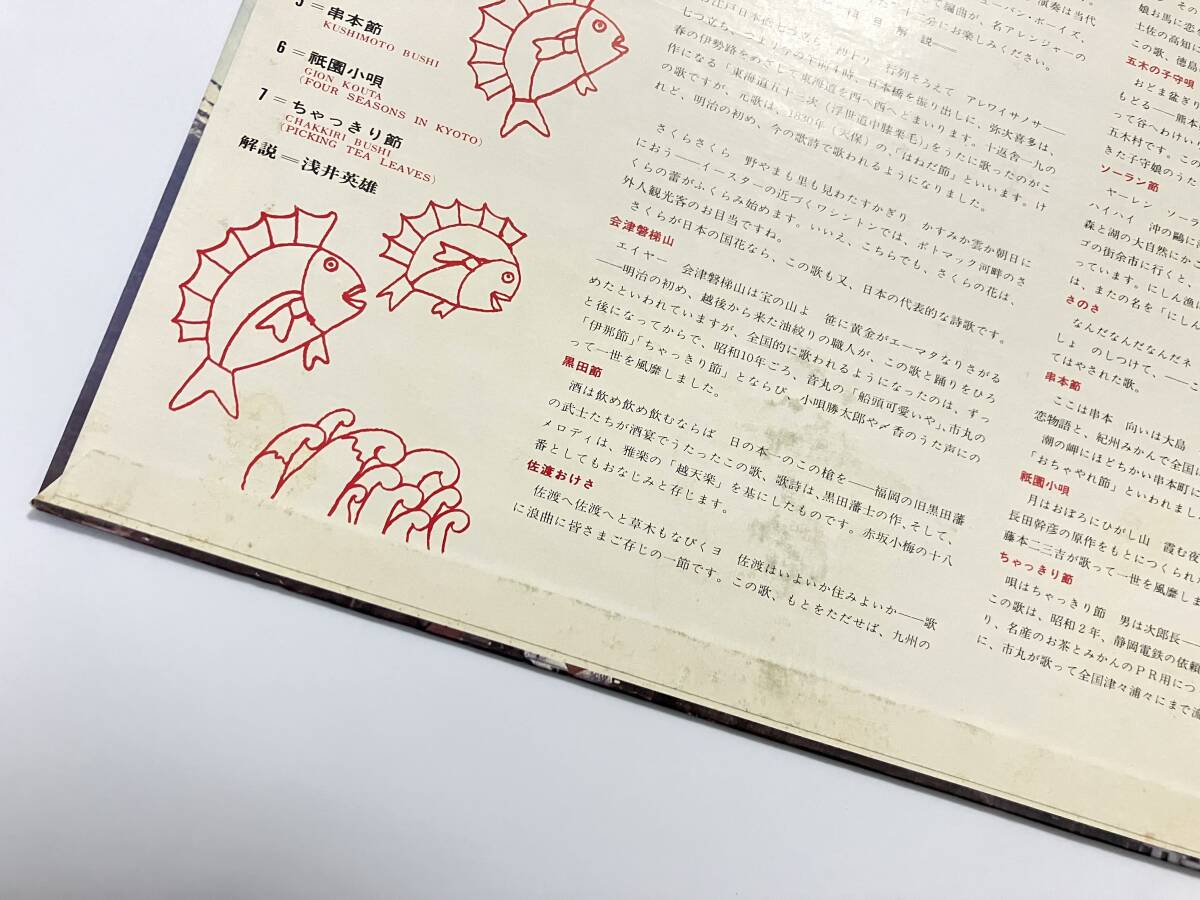 5=串本節
KUSHIMOTO BUSHI
6=祇園小唄
GION KOUTA
(FOUR SEASONS IN KYOTO)
7=ちゃっきり節
CHAKKIRI BUSHI
(PICKING TEA LEAVES)
解説=浅井英雄
演奏は当代
ューバン・ボーイズ、
編曲が、名アレンジャーの
十二分にお楽しみください。
曲目解説——
行列そろえて アレワイサノサ——
今の午前4時、日本橋を振り出しに、弥次喜多は、
春の伊勢路をめざして東海道を西へ西へとまいります。十返舎一九の
作になる「東海道五十三次（浮世道中膝栗毛）」をうたに歌ったのがこ
の歌ですが、元歌は、1830年（天保）の、「はねだ節」といいます。け
れど、明治の初め、今の歌詩で歌われるようになりました。
さくらさくら 野やまも里も見わたすかぎり かすみか雲か朝日に
におう——イースターの近づくワシントンでは、ポトマック河畔のさ
くらの蕾がふくらみ始めます。いいえ、こちらでも、さくらの花は、
外人観光客のお目当ですね。
さくらが日本の国花なら、この歌も又、日本の代表的な詩歌です。
会津磐梯山
エイヤー 会津磐梯山は宝の山よ 笹に黄金がエーマタなりさがる
——明治の初め、越後から来た油絞りの職人が、この歌と踊りをひろ
めたといわれていますが、全国的に歌われるようになったのは、ずっ
と後になってからで、昭和10年ごろ、音丸の「船頭可愛いや」、市丸の
「伊那節」「ちゃっきり節」とならび、小唄勝太郎や〆香のうた声にの
って一世を風靡しました。
黒田節
酒は飲め飲め飲むならば 日の本一のこの槍を——福岡の旧黒田藩
の武士たちが酒宴でうたったこの歌、歌詩は、黒田藩士の作、そして、
メロディは、雅楽の「越天楽」を基にしたものです。赤坂小梅の十八
番としてもおなじみと存じます。
佐渡おけさ
佐渡へ佐渡へと草木もなびくヨ 佐渡はいよいか住みよいか——歌
に浪曲に皆さまご存じの一節です。この歌、もとをただせば、九州の
娘お馬に恋を
土佐の高知
この歌、徳島
五木の子守唄
おどま盆ぎ
もどる——熊本
って谷へわけい
五木村です。この
きた子守娘のうた
ソーラン節
ヤーレン ソー
ハイハイ 沖の鷗に
森と湖の大自然にかこ
ゴの街余市に行くと、
っています。にしん漁
は、またの名を「にしん
さのさ
なんだなんだなんだネ
しょ のしつけて、——こ
てはやされた歌。
串本節
ここは串本 向いは大島
恋物語と、紀州みかんで全国に
潮の岬にほどちかい串本町に
「おちゃやれ節」といわれまし
祇園小唄
月はおぼろにひがし山 霞む夜
長田幹彦の原作をもとにつくられ
藤本二三吉が歌って一世を風靡しま
ちゃっきり節
唄はちゃっきり節 男は次郎長——
この歌は、昭和2年、静岡電鉄の依頼
り、名産のお茶とみかんのPR用につ
に、市丸が歌って全国津々浦々にまで流